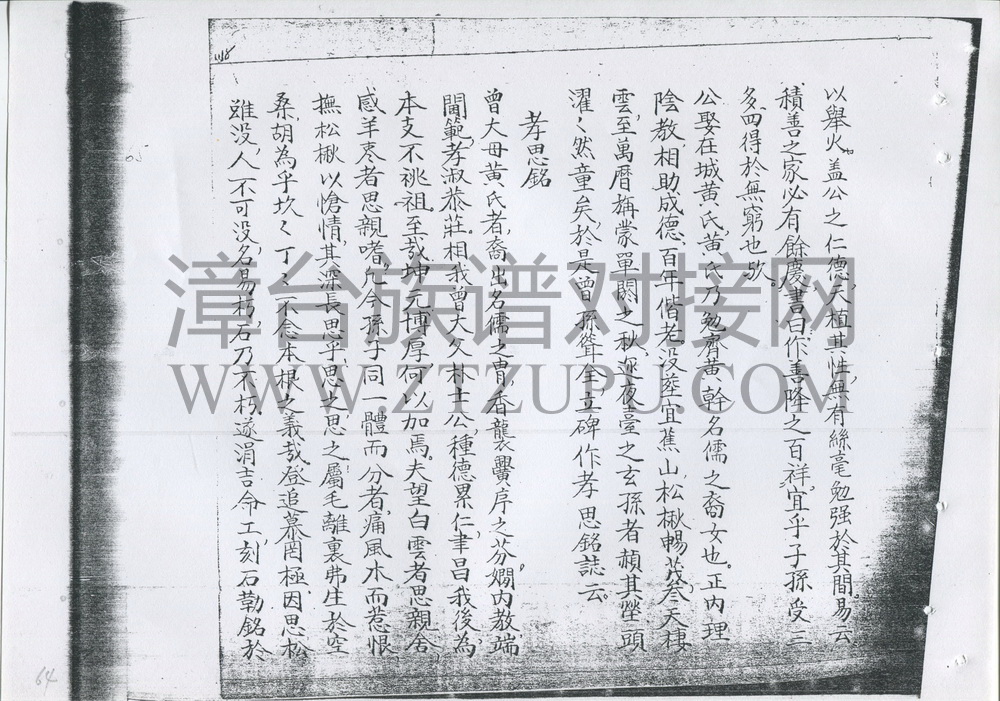 以舉火。盖公之仁德,天植其性,無有絲毫勉强於其間。易云
積善之家必有餘慶,書曰作善降之百祥,宜乎子孫受三
多四得於無窮也欤。
公娶在城黄氏,黄氏乃勉齊黄幹名儒之裔女也。正内理
陰教相助成德,百年偕老,没塟宜蕉山,松楸暢茂,叅天棲
雲,至萬曆旃蒙單閼之秋,逐夜臺之玄孫者頳其塋頭
濯〻然童矣,於是曾孫聳全立碑作孝思銘誌云。
孝思銘
曾大母黄氏者,裔出名儒之胄,香襲黌序之芬,嫺内教,端
閫範,孝淑恭莊。相我曾大父林士公,種德累仁,聿昌我後,為
本支不祧祖,至哉坤元博厚何以加焉。夫望白雲者思親舍
感羊枣者思親嗜,凢今孫子同一體而分者,痛風木而惹恨,
撫松楸以愴情,其深長思乎,思之思之,屬毛離裏,弗生於空
桑,胡為乎坎〻丁〻不念本根之義哉。登追慕罔極,因思松
雖没,人不可没,名易朽,石乃不朽,遂涓吉命工刻石勒銘於
118
05
64
漳台族谱对接网
WWW.ZTZUPU.COM